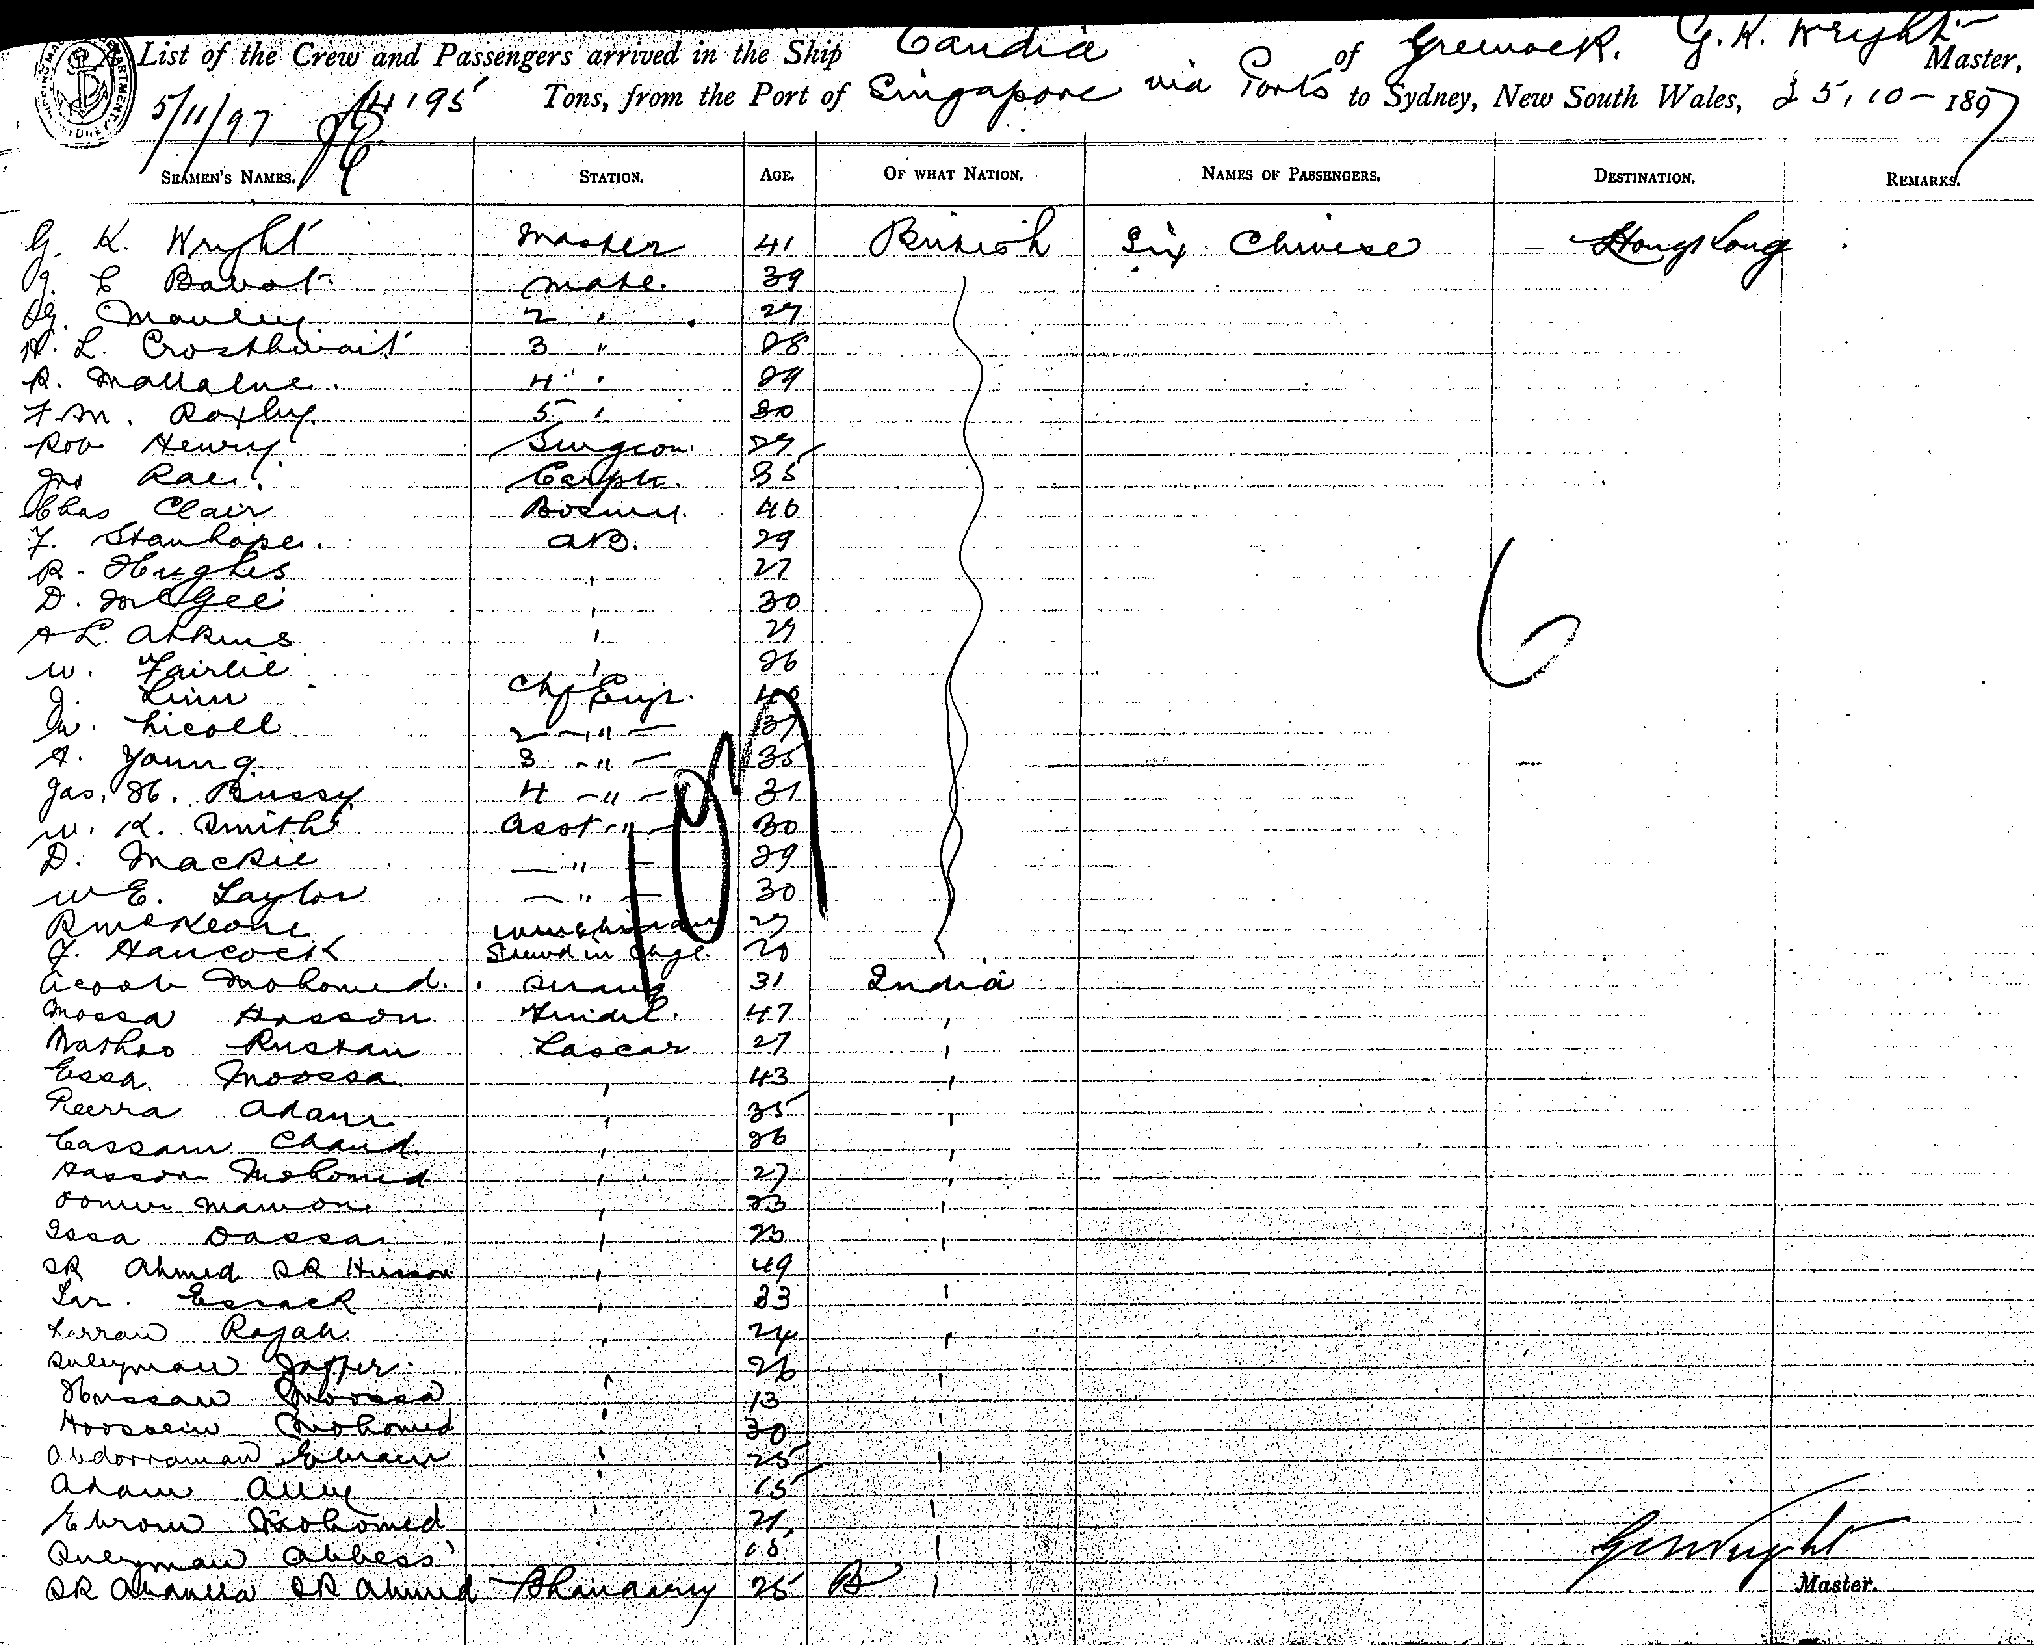 List of the Crew and Passengers arrived in the Ship Candia of Greenock. G. K. Wright Master,
5/11/97 4195 Tons, from the Port of Singapore via Ports to Sydney, New South Wales, 25, 10 - 1897
SEAMEN'S NAMES. STATION. AGE. OF WHAT NATION. NAMES OF PASSENGERS. DESTINATION. REMARKS.
G. K. Wright Master 41 British Six Chinese Hong Kong
Mate. 39
Manley 2 " 27
L. Crosthwait 3 " 28
R. Mallalue. 4 " 29
F M. Roxby 5 " 30
Rob Henry Surgeon. 29
Jno Rae. Carptr. 35
Chas Clair Bosun 40
F. Stanhope. AB. 29
R. Hughes " 27
D. McGee " 30
A L. Atkins " 29
W. Fairlie " 26
J. Linn Chf Engr. 40
W. Nicoll 2 - " - 37
A. Young 3 - " - 35
Jas. H. Bussy 4 - " - 31
W. K. Smith Asst - " - 30
D. Mackie - " - 29
W E. Taylor - " - 30
R McKeone 29
J. Hancock Steward in Chge. 20
Acoob Mohomed. Serang 31 India
Moosa Hasson Tindel. 47 "
Nathoo Rustan Lascar 27 "
Essa Moossa " 43 "
Peerra Adam " 35 "
Cassam Chand " 26 "
Hasson Mohomed " 27 "
Oomer Mamon. " 23 "
Issa Dassa " 20 "
SK Ahmed SK Husson " 49
Essack " 33 "
Rajah " 24 "
Suleyman Jaffer. 26 "
Hussan Moossa " 13 "
Hoossein Mohomed " 30 "
Abdorraman Ebraim " 25 "
Adam Ally " 15
Ebrom Mohomed " 21 "
Suleyman Abbess "
SK SK Ahmed Bhandarry 25 B "
6
197
G K Wright
Master.